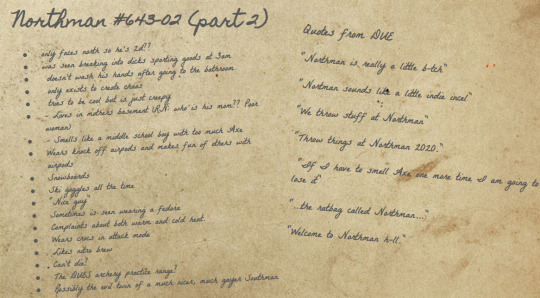 Northman #643-02 (part 2)
only faces north so he's 2d??
was seen breaking into dicks sporting goods at 3am
doesn't wash his hands after going to the bathroom
only exists to create chaos
tries to be cool but is just creepy
- Lives in mothers basement (R.N: who is his mom?? Poor
woman)
- Smells like a middle school boy with too much Axe
Wears knock off airpods and makes fun of others with
airpods
Snowboards
Ski goggles all the time
"Nice guy"
Sometimes is seen wearing a fedora
Complaints about both warm and cold heat
Wears crocs in attack mode
Likes nitro brew
Can't die?
The DUES archery practice range?
Possibly the evil twin of a much nicer, much gayer Southman
Quotes from DUE
"Northman is really a little b-tch"
"Nortman sounds like a little indie incel"
"We throw stuff at Northman"
"Throw things at Northman 2020."
"If I have to smell Axe one more time I am going to
lose it"
"..the ratbag called Northman..."
"Welcome to Northman h-ll."